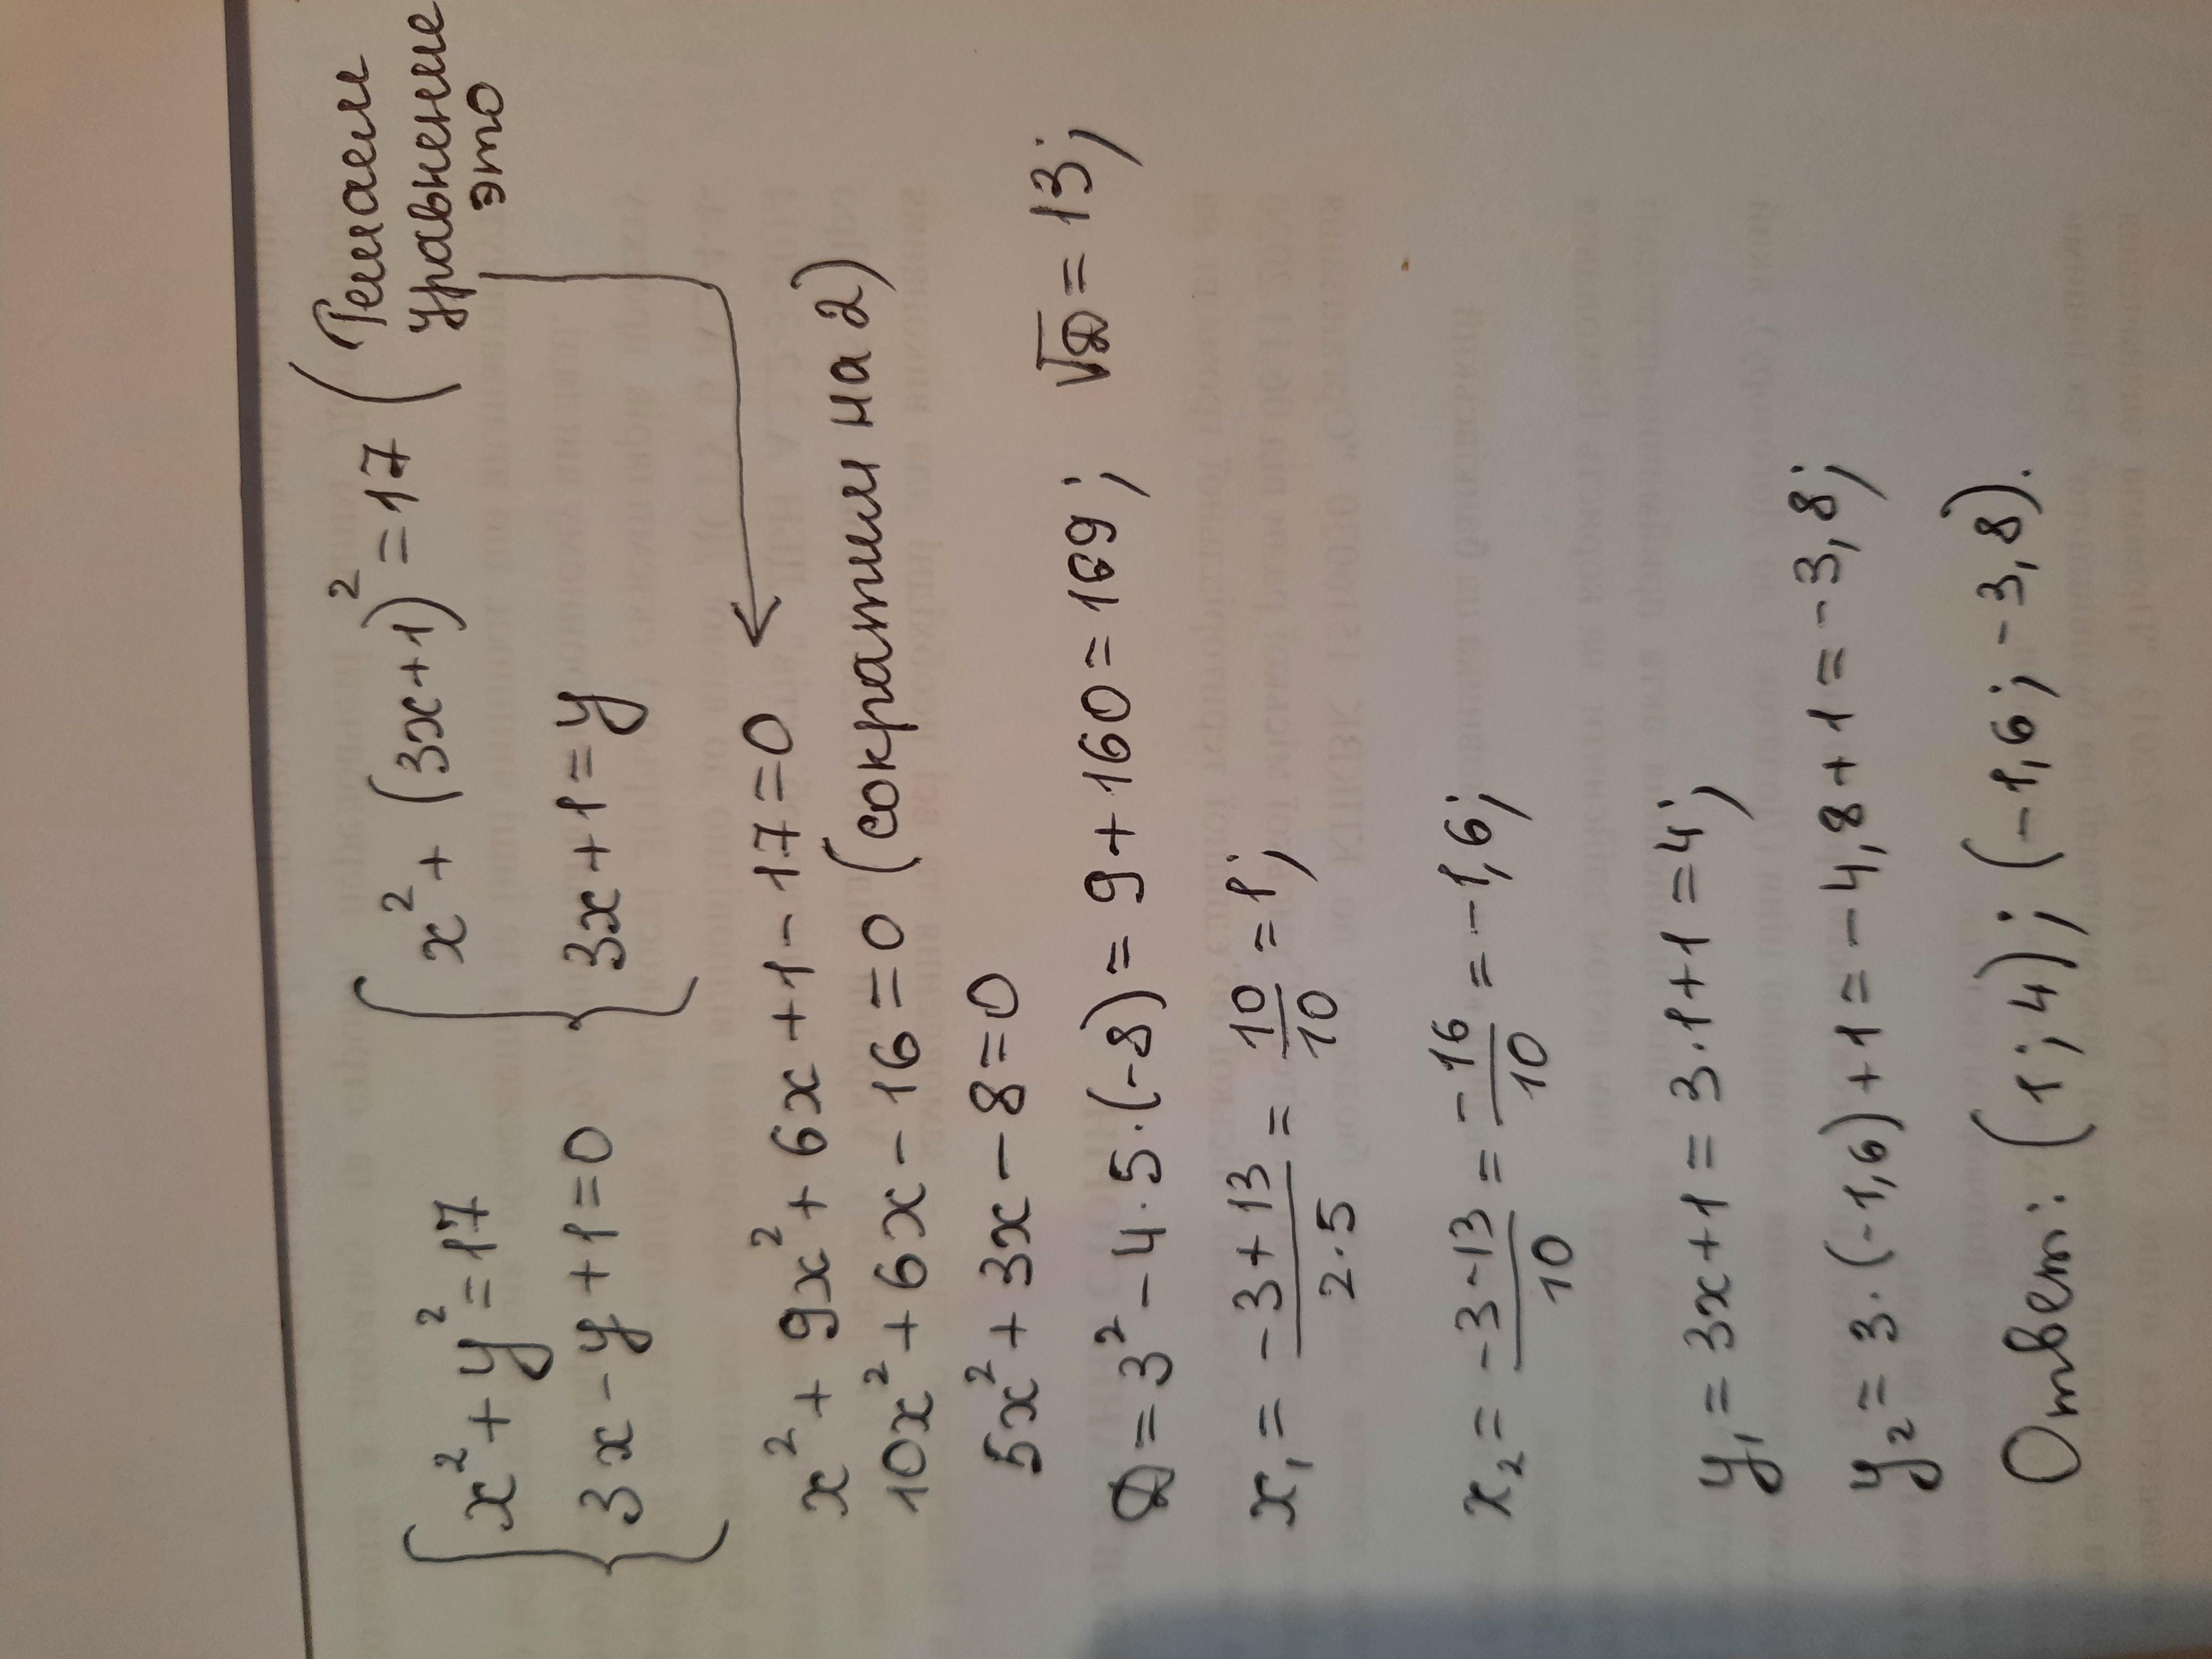 { x² + y² = 17   { x² + (3x+1)² = 17 (Решаем
уравнение
это
{ 3x - y + 1 = 0   { 3x + 1 = y
x² + 9x² + 6x + 1 - 17 = 0
10x² + 6x - 16 = 0 (сократим на 2)
5x² + 3x - 8 = 0
D = 3² - 4·5·(-8) = 9 + 160 = 169; √D = 13;
x₁ = (-3+13)/(2·5) = 10/10 = 1;
x₂ = (-3-13)/10 = -16/10 = -1,6;
y₁ = 3x + 1 = 3·1 + 1 = 4;
y₂ = 3·(-1,6) + 1 = -4,8 + 1 = -3,8;
Ответ: (1; 4); (-1,6; -3,8).